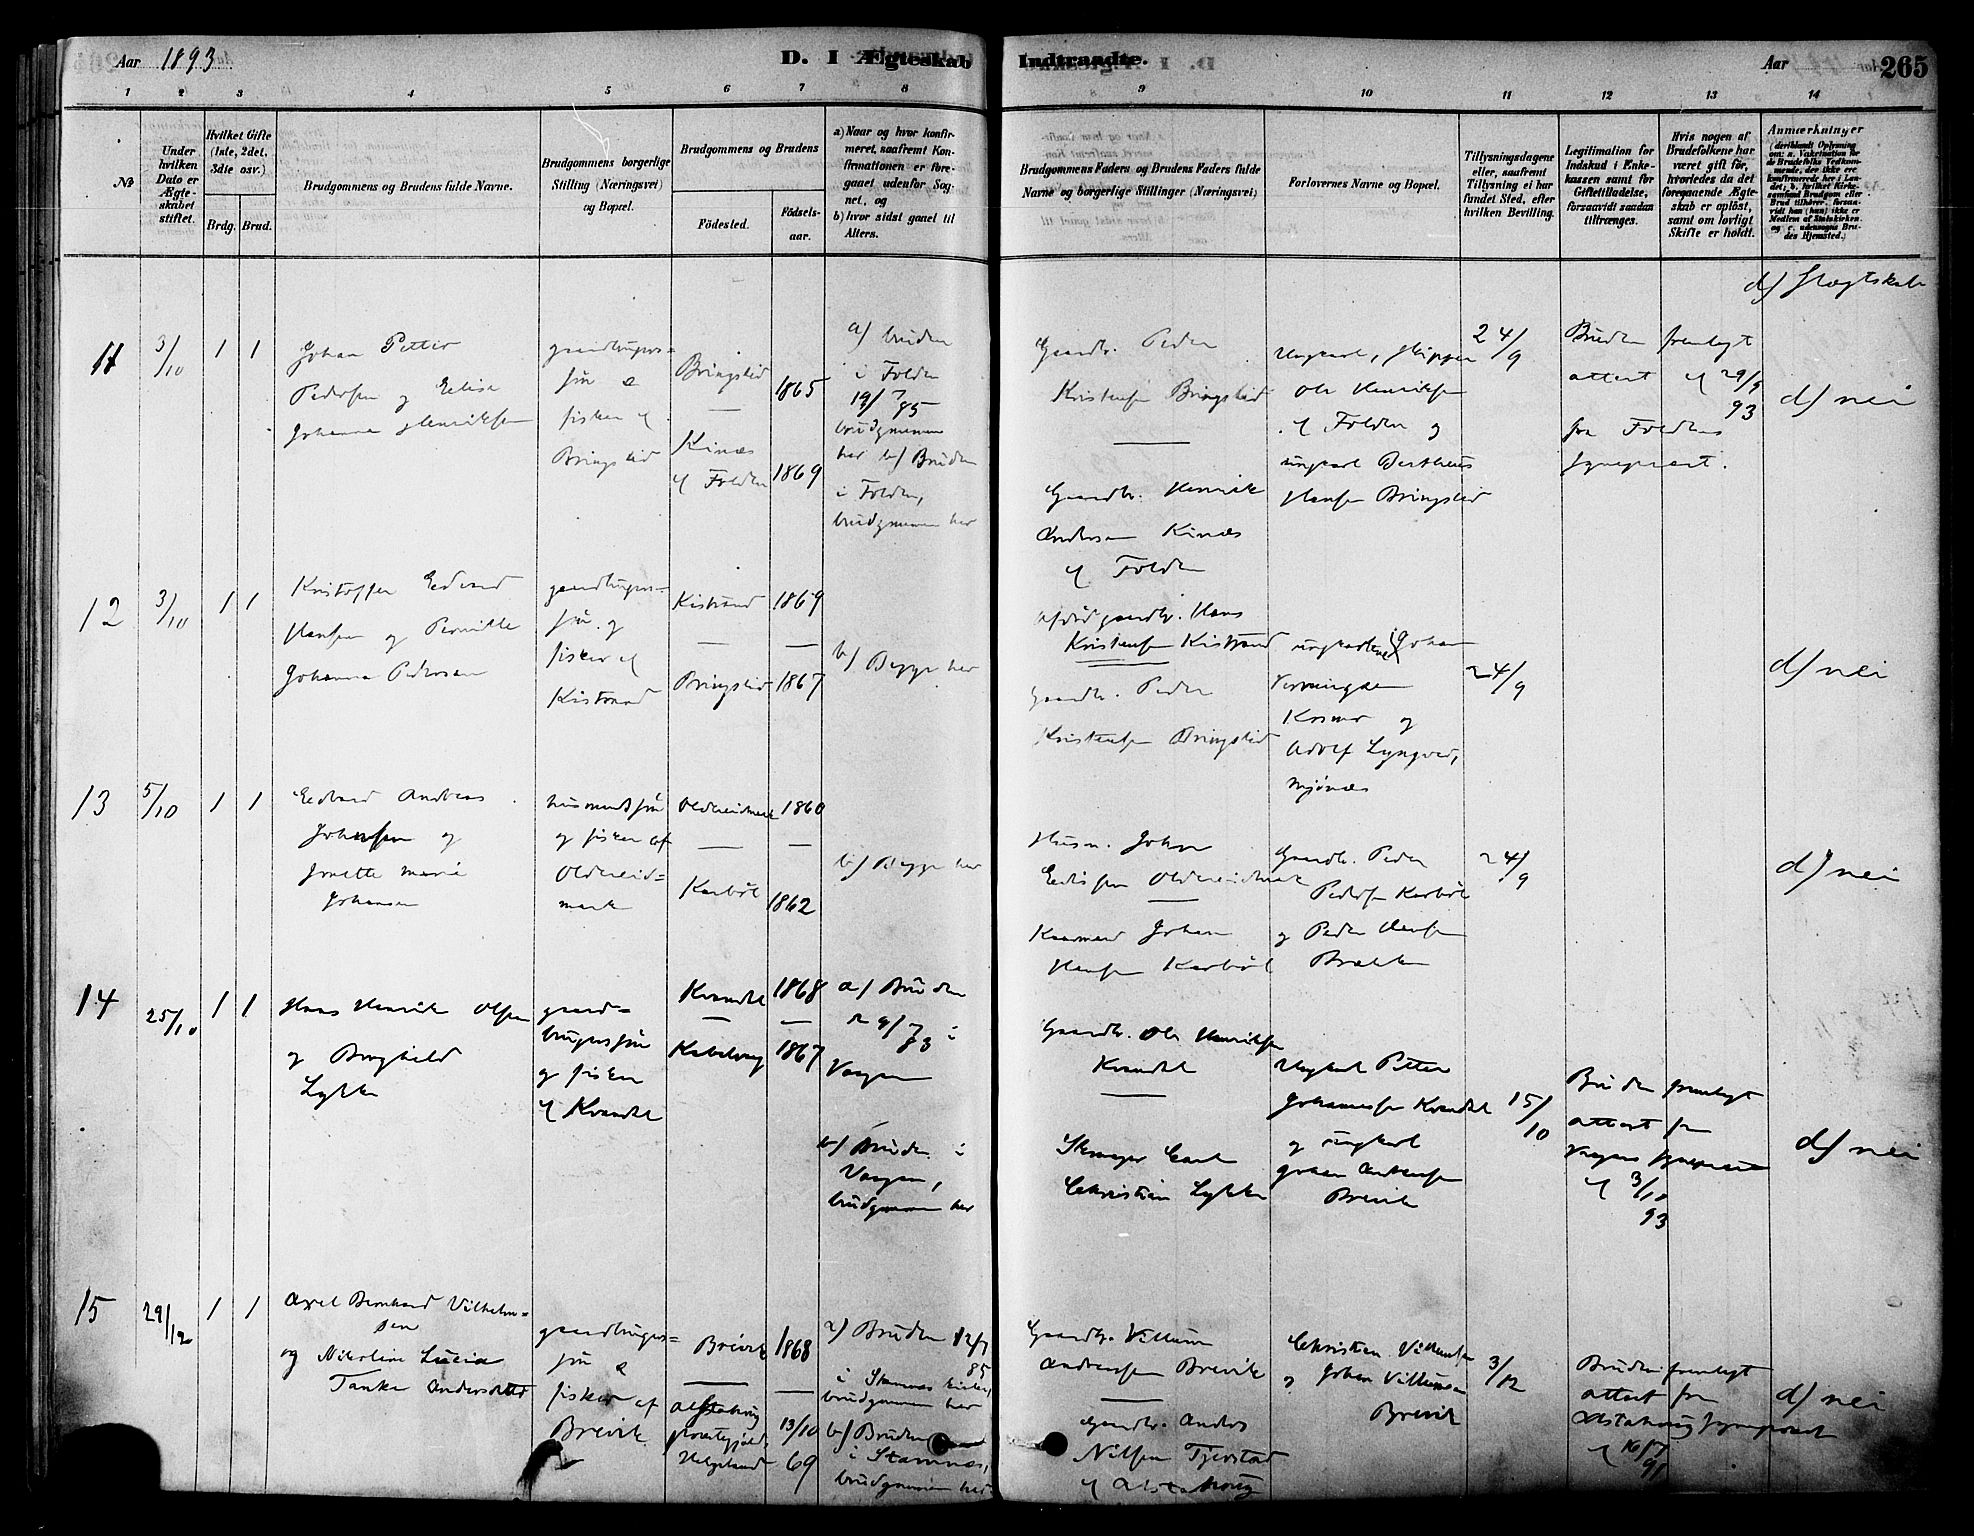 Aar 1893
D. I Ægteskab Indtraadte.
Aar
265
1 2 3 4 5 6 7 8 9 10 11 12 13 14
No
Under hvilken Dato er Ægteskabet stiftet.
Hvilket Gifte (1ste, 2det, 3die osv.)
Brdg. Brud.
Brudgommens og Brudens fulde Navne.
Brudgommens borgerlige Stilling (Næringsvei) og Bopæl.
Brudgommens og Brudens
Födested.
Födsels-aar.
a) Naar og hvor konfirmeret, saafremt Konfirmationen er foregaaet udenfor Sognet, og
b) hvor sidst gaaet til Alters.
Brudgommens Faders og Brudens Faders fulde Navne og borgerlige Stillinger (Næringsvei)
Forlovernes Navne og Bopæl.
Tillysningsdagene eller, saafremt Tillysning ei har fundet Sted, efter hvilken Bevilling.
Legitimation for Indskud i Enkekassen samt for Giftetilladelse, forsaavidt saadan tiltrænges.
Hvis nogen af Brudefolkene har været gift för, hvorledes da det foregaaende Ægteskab er oplöst, samt om lovligt Skifte er holdt.
Anmærkninger
d) Slægtskab
11
3/10
1 1
Johan Petter
Pedersen og Elise
Johanna Henriksen
gaardbrugers=
søn &
fisker af
Bringslid
Bringslid
—
Kinæs
af Folden
1865
1869
a) bruden
i Folden
19/7 85
brudgummen
her b) Bruden
i Folden,
brudgummen her
Gaardbr. Peder
Kristensen Bringslid
—
Gaardbr. Henrik
Andersen Kinæs
af Folden
Ungkarl, skipper
Ole Henriksen
af Folden og
ungkarl Bertheus
Hansen Bringslid
24/9
Bruden fremlagt
attest af 29/9
93
fra Foldens
sognepræst.
d) nei
12
3/10
1 1
Kristoffer Edvard
Hansen og Pernille
Johanna Pedersen
gaardbrugers=
søn og
fisker af
Kistrand
Kistrand
—
Bringslid
1869
—
1867
b) Begge her
Afdød gaardbr. Hans
Kristensen Kistrand
Gaardbr. Peder
Kristensen Bringslid
ungkarlene Johan
Kosmo og
Adolf Lyngved,
Mjønæs
24/9
d) nei
13
5/10
1 1
Edvard Andreas
Johansen og
Marie
Johansen
husmandssøn
og fisker af
Oldereid=
mark
Oldereidmark
—
Karbøl
1860
—
1862
b) Begge her
Husm. Johan
Oldereidmark
—
Johan
Hansen Karbøl
Gaardbr. Peder
Pedersen Karbøl
og Peder Hansen
Brækken
24/9
d) nei
14
25/10
1 1
Hans Henrik Olsen
og Borghild
Lykke
gaard=
brugerssøn
og fisker
af Kvandal
Kvandal
—
Kabelvaag
1868
—
1867
a) Bruden
i
Vaagen
b) Bruden i
Vaagen,
brudgummen her
Gaardbr. Ole Henriksen
Kvandal
—
Carl
Christian Lykke
Ungkarl Petter
Johannessen Kvandal
og ungkarl
Johan Andreas
Brevik
15/10
Bruden fremlagt
attest fra
Vaagens sognepræst
af 3/10
93
d) nei
15
29/12
1 1
Axel Bernhard Vilhelm=
sen
og Nikoline Lucia
Tanke Andersdatter
gaardbrugers=
søn &
fisker af
Brevik
Brevik
—
Alstahoug
præstegjeld,
Helgeland
1868
—
13/10
69
a) Bruden 12/7
85
i Stamnæs kirke,
brudgummen her
b) Bruden
i Stamnæs,
brudgummen her
Gaardbr. Villum
Andreassen Brevik
—
Gaardbr. Anders
Nilsen Tjøtstad
af Alstahoug
Christian Villumsen
og Johan Villumsen
Brevik
3/12
Bruden fremlagt
attest fra
Alstahoug sognepræst
af 16/7
91
d) nei